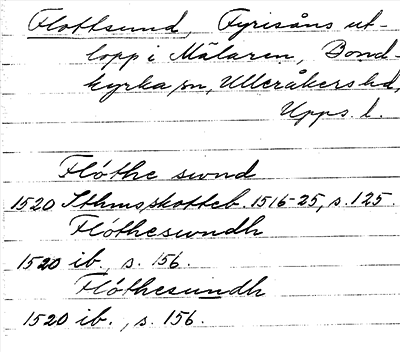 Flottsund, Fyrisåns ut-
lopp i Mälaren, Bond-
kyrka sn, Ulleråkers hd,
Upps. l.
Flóthe swnd
1520 Sthmsskotteb. 1516-25, s. 125.
Flótheswndh
1520 ib., s. 156.
Flóthesundh
1520 ib., s. 156.